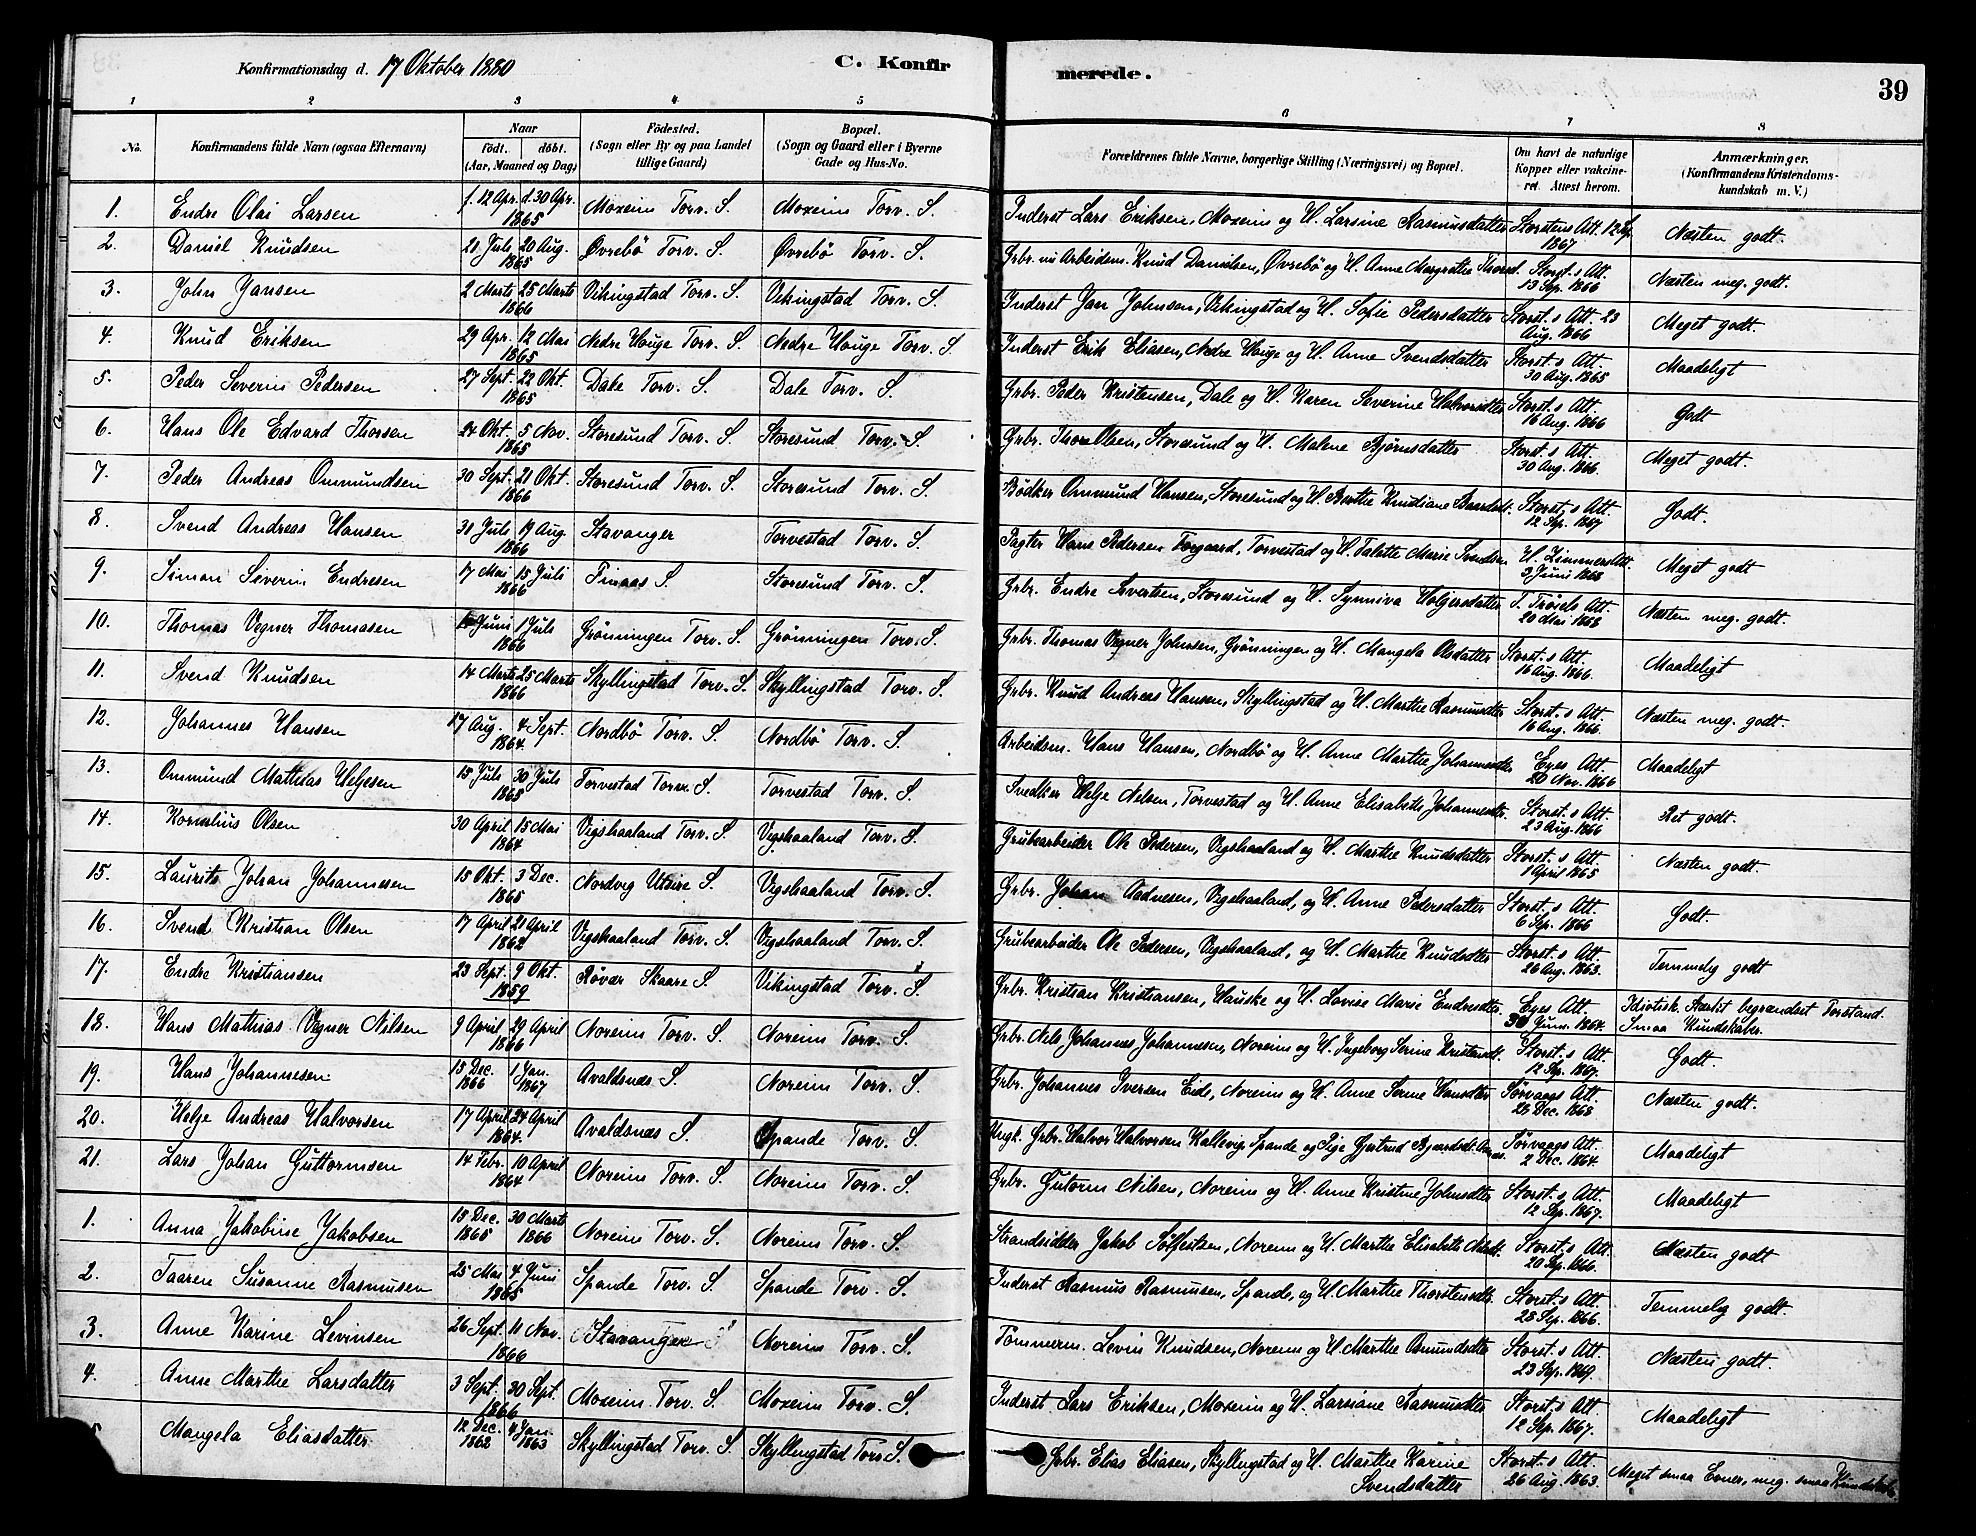 Konfirmationsdag d. 17 Oktober 1880
C. Konfirmerede.
39
1 2 3 4 5 6 7 8
No.
Konfirmandens fulde Navn (ogsaa Efternavn)
Naar
födt. döbt.
(Aar, Maaned og Dag)
Födested.
(Sogn eller By og paa Landet tillige Gaard)
Bopæl.
(Sogn og Gaard eller i Byerne Gade og Hus-No.
Forældrenes fulde Navne, borgerlige Stilling (Næringsvei) og Bopæl.
Om havt de naturlige Kopper eller vakcineret. Attest herom.
Anmærkninger.
(Konfirmandens Kristendomskundskab m. V.)
1. Endre Olai Larsen f. 12 Apr. d. 30 Apr. 1865 Moxeim Torv. S. Moxeim Torv. S. Inderst Lars Eriksen, Moxeim og H. Larsine Rasmusdatter Storstens Att. 12 Sp. 1867 Næsten godt.
2. Daniel Knudsen 20 Aug. 1865 Øvrebö Torv. S. Øvrebö Torv. S. Grbr. nu Arbeidsm. Knud Danielsen, Øvrebö og H. Anne Margrethe Thorsd. Storst.s Att. 13 Sep. 1866 Næsten meg. godt.
3. John Jansen 2 Marts 25 Marts 1866 Vikingstad Torv. S. Vikingstad Torv. S. Inderst Jan Johnsen, Vikingstad og H. Sofie Pedersdatter Storst.s Att. 23 Aug. 1866 Meget godt.
4. Knud Eriksen 29 Apr. 12 Mai 1865 Nedre Hauge Torv. S. Nedre Hauge Torv. S. Inderst Erik Eliasen, Nedre Hauge og H. Anne Svendsdatter Storst.s Att. 30 Aug. 1865 Maadeligt
5. Peder Severin Pedersen 27 Sept. 22 Okt. 1865 Dale Torv. S. Dale Torv. S. Grbr. Peder Kristensen, Dale og H. Karen Severine Halvorsdtr Storst.s Att. 16 Aug. 1866 Godt
6. Hans Ole Edvard Thorsen 24 Okt. 5 Nov. 1865 Storesund Torv. S. Storesund Torv. S. Grbr. Thor Olsen, Storesund og H. Malene Bjørnsdatter Storst.s Att. 30 Aug. 1866. Meget godt.
7. Peder Andreas Ommundsen 30 Sept. 21 Okt. 1866 Storesund Torv. S. Storesund Torv. S. Bödker Ommund Hansen, Storesund og H. Berthe Kristiane Baardsdt. Storst.s Att. 12 Sep. 1867 Godt.
8. Svend Andreas Hansen 19 Aug. 1866 Stavanger Torvestad Torv. S. Pagter Hans Pedersen Torgaard, Torvestad og H. Talette Marie Svendsen Att. Juni 1868 Meget godt
9. Simon Severin Endresen 17 Mai 15 Juli 1866 Finaas S. Storesund Torv. S. Grbr. Endre Sivertsen, Storesund og H. Synniva Holgersdatter Att. 20 Mai 1868 Næsten meg. godt.
10. Thomas Vegner Thomasen Juni 1 Juli 1866 Grönningen Torv. S. Grönningen Torv. S. Grbr. Thomas Vegner Johnsen, Grönningen og H. Mangela Olsdatter Storst.s Att. 16 Aug. 1866. Maadeligt
11. Svend Knudsen 14 Marts 25 Marts 1866 Skyllingstad Torv. S. Skyllingstad Torv. S. Grbr. Knud Andreas Hansen, Skyllingstad og H. Marthe Rasmusdtr Storst.s Att. 16 Aug. 1866. Næsten meg. godt.
12. Johannes Hansen 17 Aug. 4 Sept. 1864. Nordbö Torv. S. Nordbö Torv. S. Arbeidsm. Hans Hansen, Nordbö og H. Anne Marthe Johannesdtr Eyes Att. 20 Nov. 1866 Maadeligt
13. Ommund Mathias Helgesen 15 Juli 30 Juli 1865 Torvestad Torv. S. Torvestad Torv. S. Snedker Helge Nelsen, Torvestad og H. Anne Elisabeth Johannesdtr Storst.s Att. 23 Aug. 1866 Ret godt.
14. Kornelius Olsen 30 April 15 Mai 1864 Vegshaaland Torv. S. Vegshaaland Torv. S. Grubearbeider Ole Pedersen, Vegshaaland og H. Marthe Knudsdatter Storst.s Att. 1 April 1865 Næsten godt.
15. Laurits Johan Johannesen 15 Okt. 3 Dec. 1865 Nordvig Utsire S. Vegshaaland Torv. S. Grbr. Johan Aadnesen, Vegshaaland, og H. Anne Pedersdatter Storst.s Att. 6 Sep. 1866 Godt.
16. Svend Kristian Olsen 17 April 21 April 1862 Vegshaaland Torv. S. Vegshaaland Torv. S. Grubearbeider Ole Pedersen, Vegshaaland, og H. Marthe Knudsdatter Storst.s Att. 26 Aug. 1863. Temmelig godt
17. Endre Kristiansen 23 Sept. 9 Okt. 1859 Røvær Skaare S. Vikingstad Torv. S. Grbr. Kristian Kristiansen, Hauske og H. Lovise Marie Endresdtr. Eyes Att. 30 Juni 1864. Idiotisk. Stærkt begrændset Forstand. Smaa Kundskaber.
18. Hans Mathias Vegner Nilsen 9 April 29 April 1866 Noreim Torv. S. Noreim Torv. S. Grbr. Nils Johannes Johannesen, Noreim og H. Ingeborg Serine Kristensdt. Storst.s Att. 12 Sep. 1867. Godt.
19. Hans Johannesen 15 Dec. 1866 1 Jan. 1867 Avaldsnæs S. Noreim Torv. S. Grbr. Johannes Iversen Eide, Noreim og H. Anne Serine Hansdtr Sørvaags Att. 23 Dec. 1868 Næsten godt.
20. Helge Andreas Halvorsen 17 April 24 April 1864. Avaldsnæs S. Spande Torv. S. Ungk. Grbr. Halvor Halvorsen Kallevig, Spande og Pige Gjertrud Sørvaags Att. 2 Dec. 1864. Maadeligt
21. Lars Johan Guttormsen 14 Febr. 10 April 1864 Noreim Torv. S. Noreim Torv. S. Grbr. Gutorm Nilsen, Noreim og H. Anne Kristine Johnsdtr Storst.s Att. 12 Sep. 1867. Maadeligt
1. Anna Jakobine Jakobsen 15 Dec. 1865 30 Marts 1866 Noreim Torv. S. Noreim Torv. S. Strandsidder Jakob Sølfestsen, Noreim og H. Marthe Elisabeth Storst.s Att. 20 Sep. 1866. Næsten godt
2. Taaren Susanne Rasmusen 25 Mai 4 Juni 1865 Spande Torv. S. Spande Torv. S. Inderst Rasmus Rasmusen, Spande, og H. Marthe Thorstensdtr. Storst.s Att. 28 Sep. 1866. Temmelig godt.
3. Anne Karine Levinsen 26 Sept. 11 Nov. 1866 Stavanger Noreim Torv. S. Tömmerm. Levin Knudsen, Noreim og H. Marthe Osmundsdtr Storst.s Att. 23 Sep. 1869. Næsten godt.
4. Anne Marthe Larsdatter 3 Sept. 30 Sept. 1866 Moxeim Torv. S. Moxeim Torv. S. Inderst Lars Eriksen, Moxeim og H. Larsine Rasmusdtr Storst.s Att. 12 Sep. 1867. Maadeligt
Mangela Eliasdatter 12 Dec. 1862 4 Jan. 1863 Skyllingstad Torv. S. Skyllingstad Torv. S. Grbr. Elias Eliasen, Skyllingstad og H. Marthe Karine Svendsdatter Storst.s Att. 26 Aug. 1863. Meget smaa Evner, meg. smaa Kundskab.